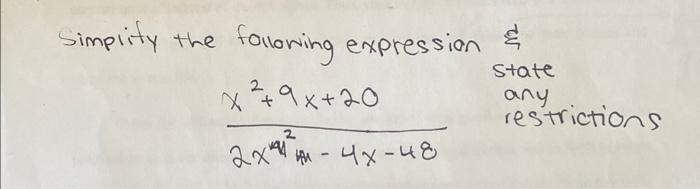 Simplify the following expression &
state
any
restrictions
x²+9x+20
2x² - 4x-48